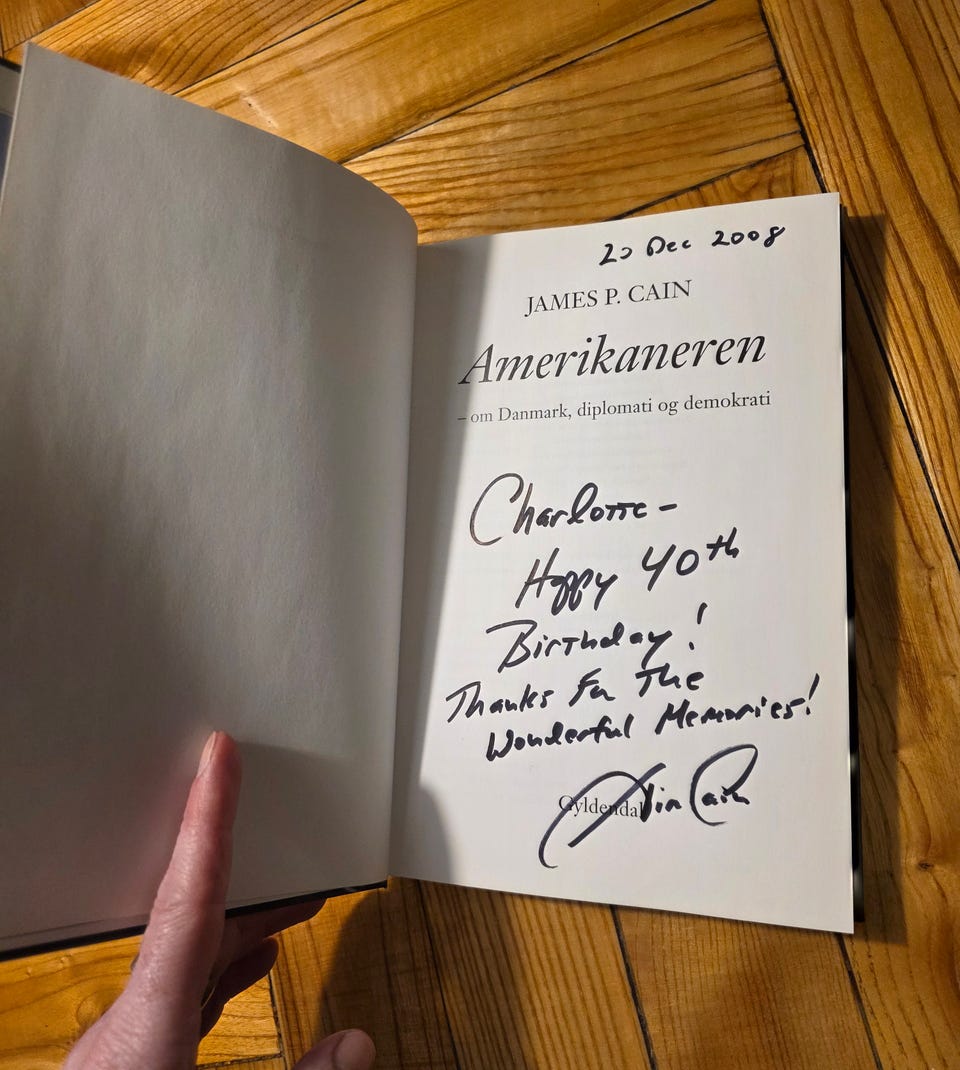 20 Dec 2008
JAMES P. CAIN
Amerikaneren
– om Danmark, diplomati og demokrati
Charlotte –
Happy 40th
Birthday!
Thanks for the
Wonderful Memories!
Gyldendal
Jim Cain